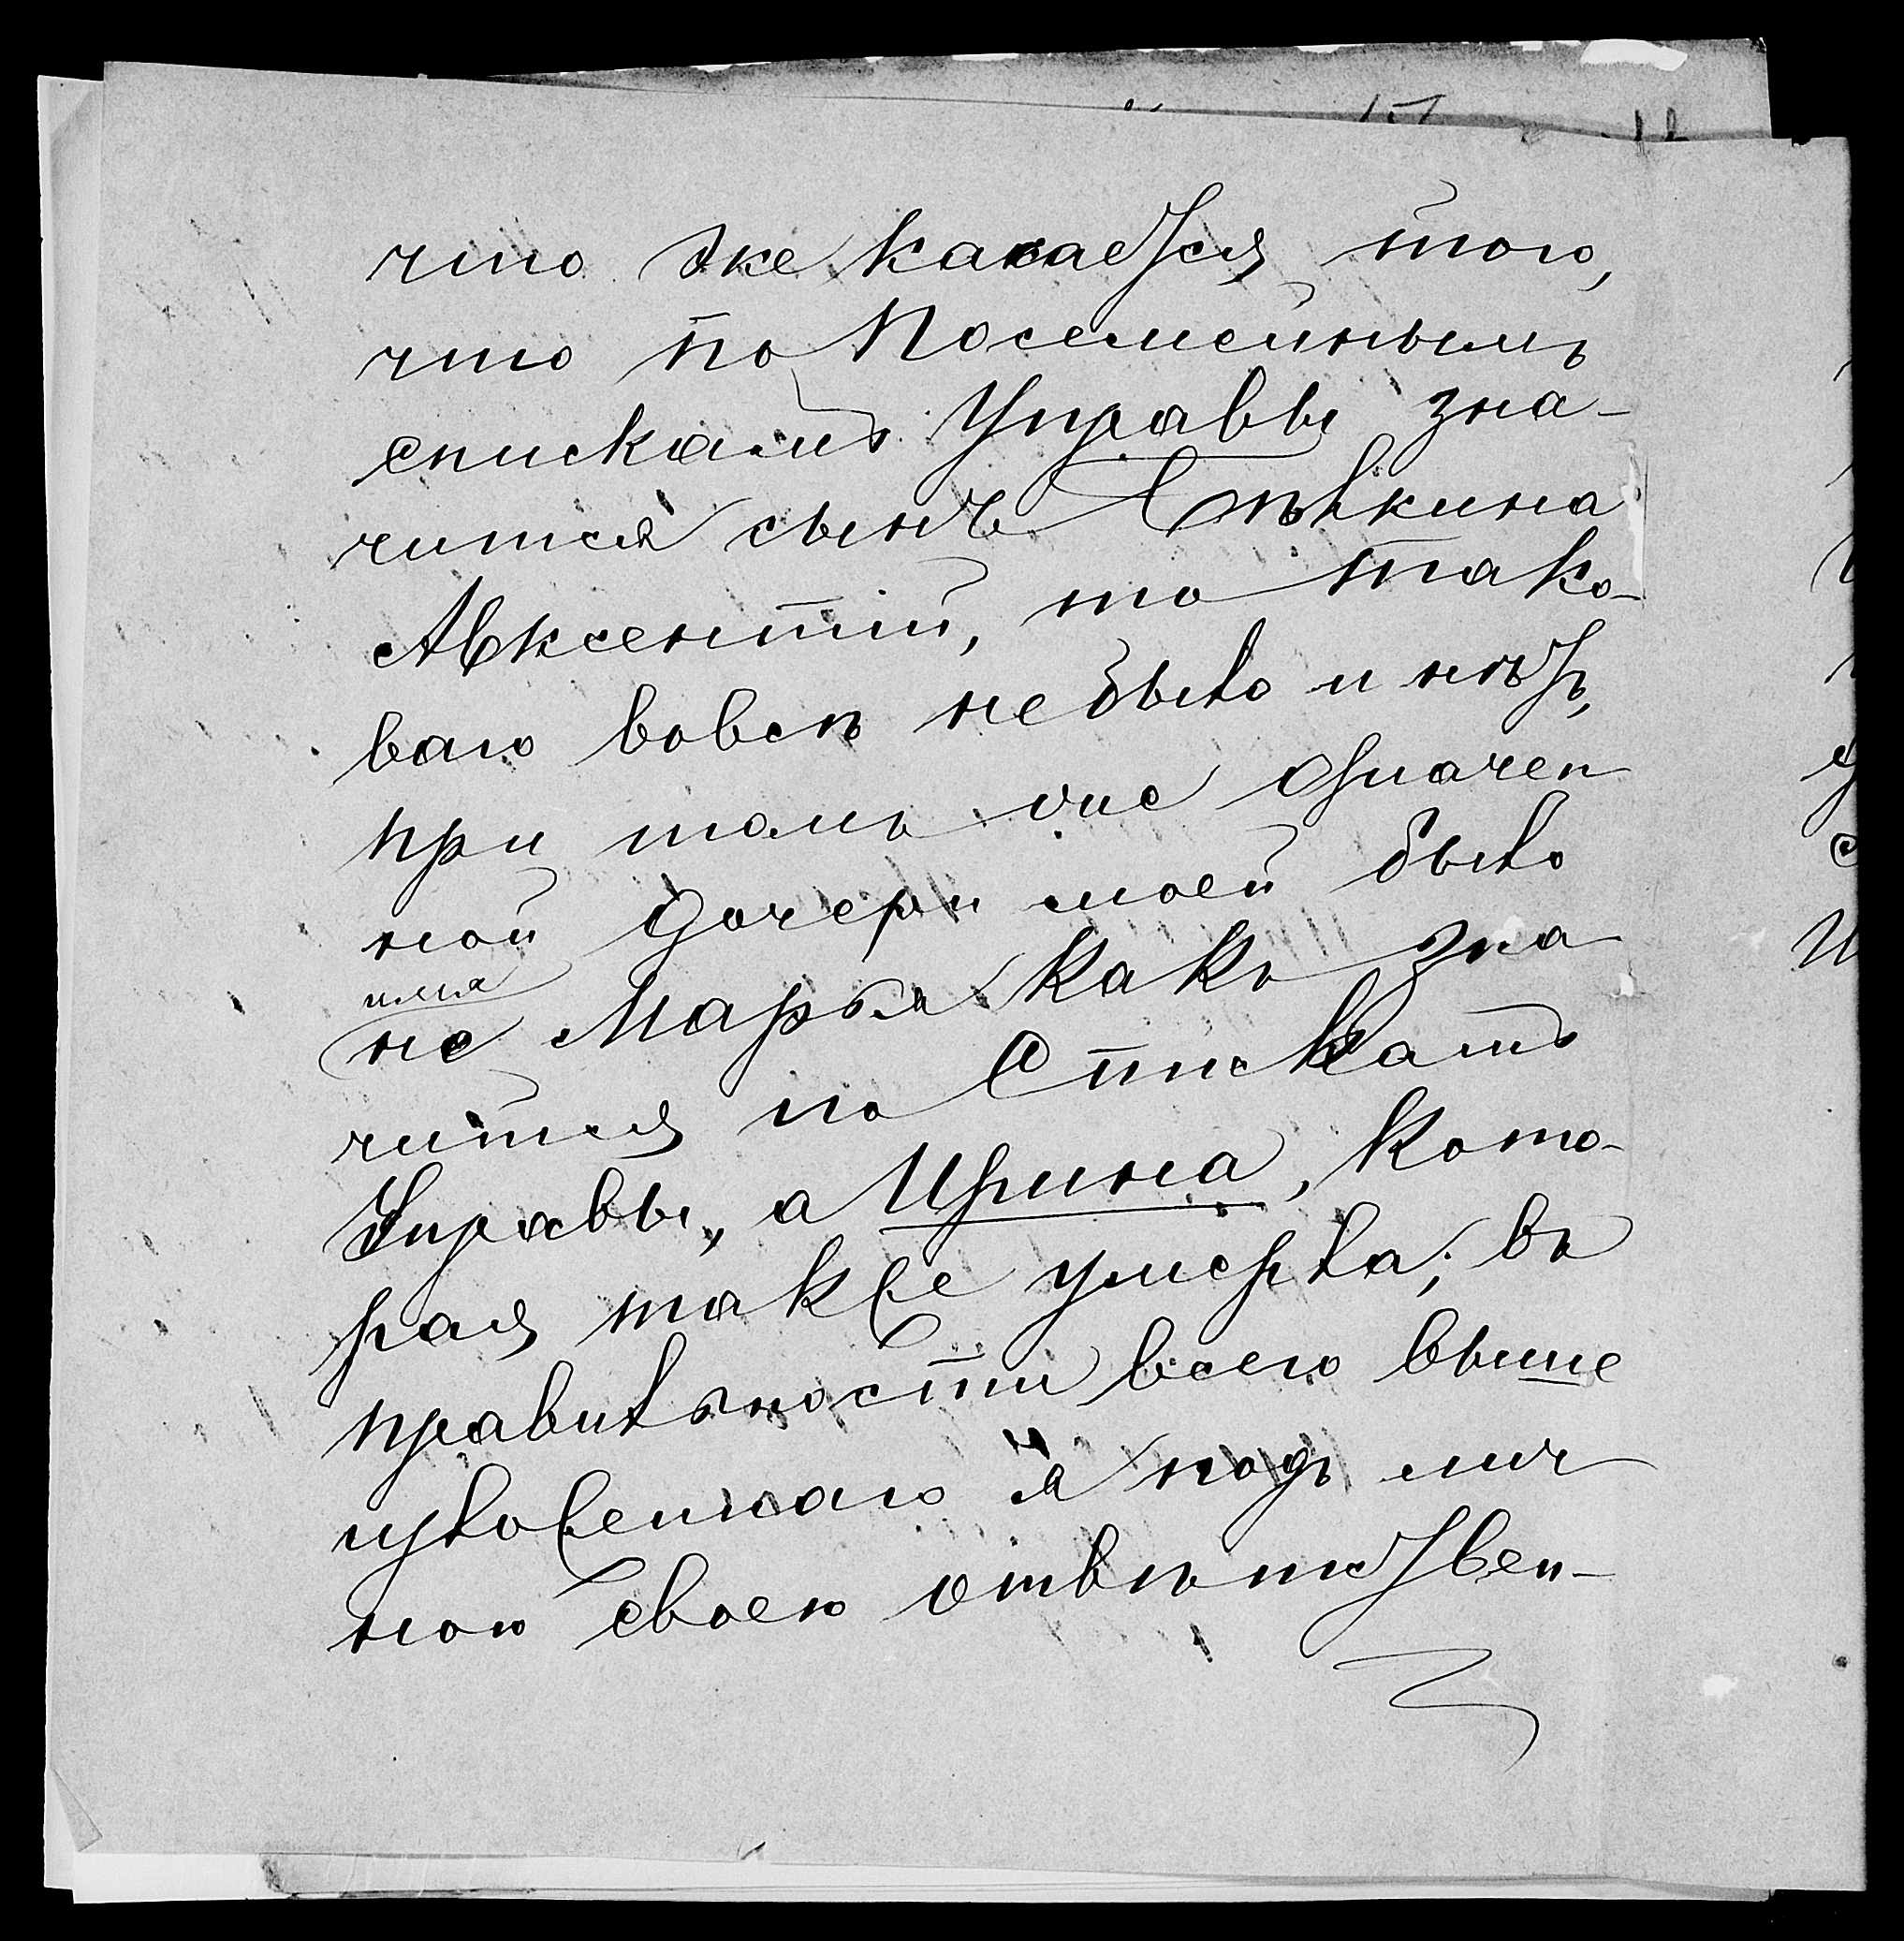 что же касается того,
что по Посемейнымъ
спискамъ Управы зна-
чится сынъ
Авксентій, то тако-
ваго вовсе не было и нѣтъ,
при томъ же означен
ной дочери моей было
имя
не Марья какъ зна
чится по Спискамъ
Управы, а Ирина, кото-
рая также умерла; въ
правильности всего выше
изложеннаго я подъ лич
ною своею отвѣтствен-